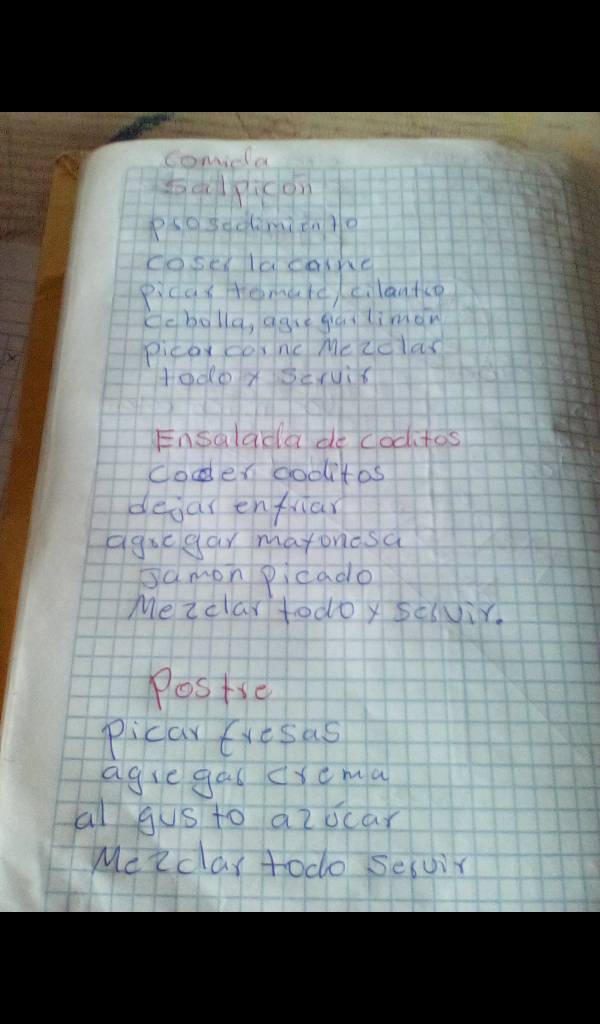 comida
salpicón
prosedimiento
coser la carne
picar tomate, cilantro
cebolla, agregar limón
picar carne Mezclar
todo y servir
Ensalada de coditos
cocer coditos
dejar enfriar
agregar mayonesa
Jamón picado
Mezclar todo y servir.
Postre
picar fresas
agregar crema
al gusto azúcar
Mezclar todo servir